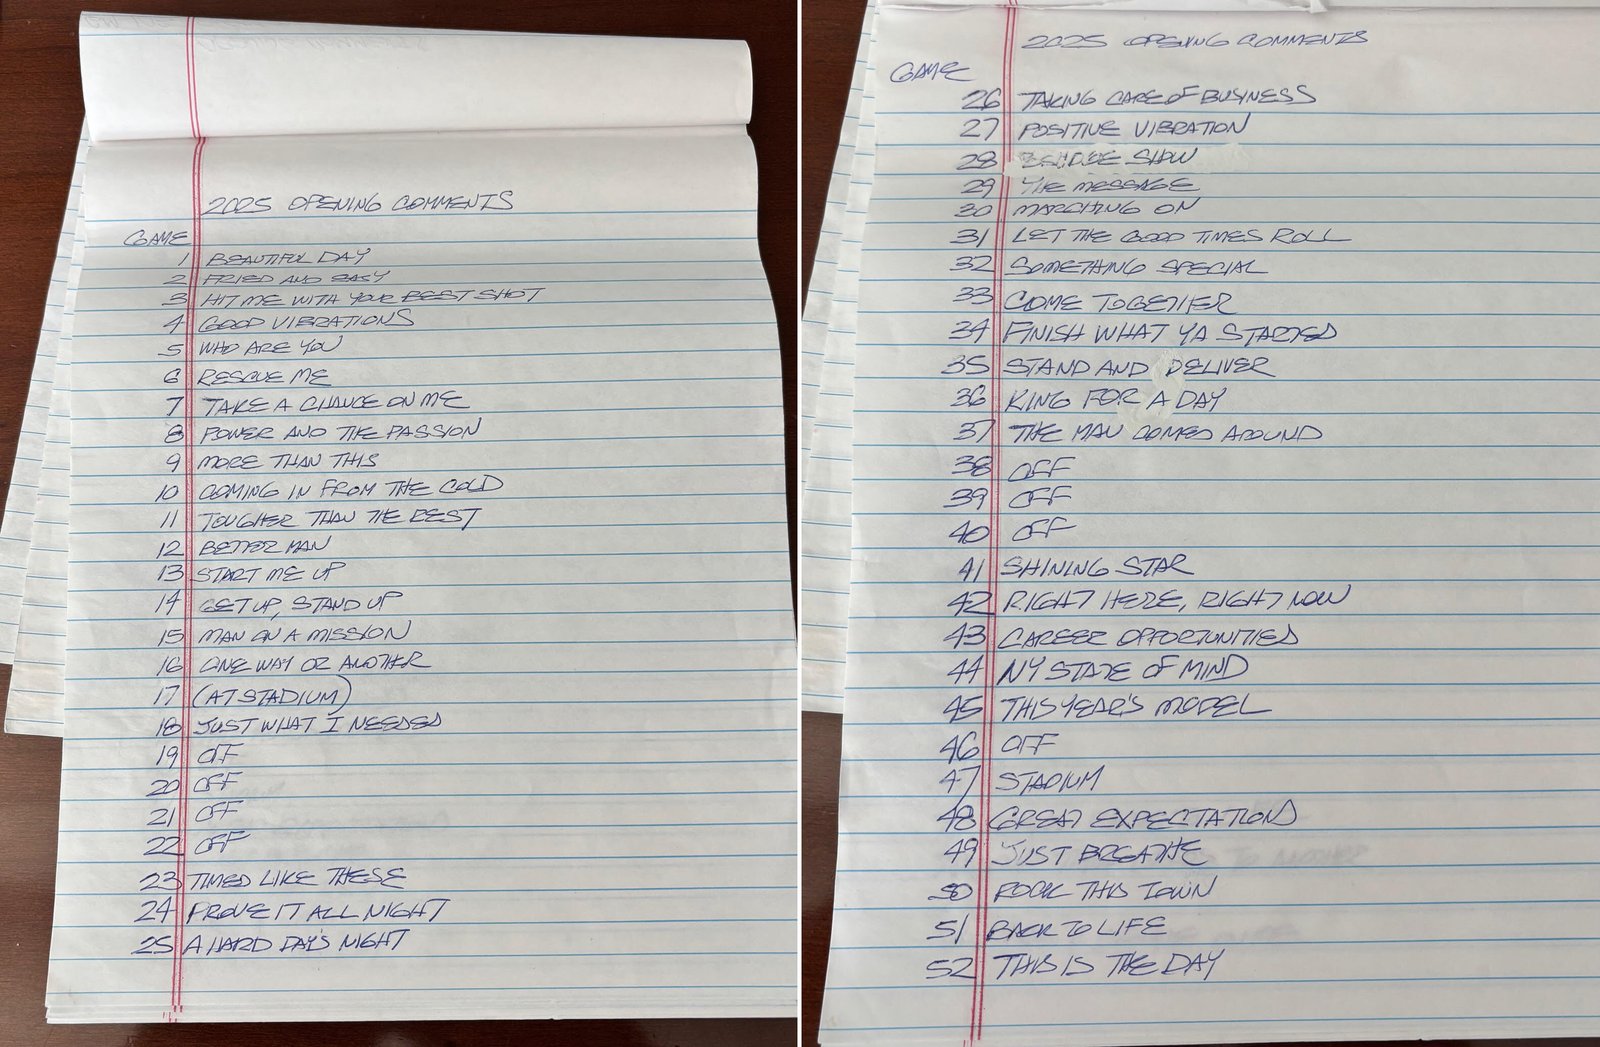 2025 OPENING COMMENTS
GAME
1 BEAUTIFUL DAY
2 FRIED AND EASY
3 HIT ME WITH YOUR BEST SHOT
4 GOOD VIBRATIONS
5 WHO ARE YOU
6 RESCUE ME
7 TAKE A CHANCE ON ME
8 POWER AND THE PASSION
9 MORE THAN THIS
10 COMING IN FROM THE COLD
11 TOUGHER THAN THE REST
12 BETTER MAN
13 START ME UP
14 GET UP, STAND UP
15 MAN ON A MISSION
16 ONE WAY OR ANOTHER
17 (AT STADIUM)
18 JUST WHAT I NEEDED
19 OFF
20 OFF
21 OFF
22 OFF
23 TIMES LIKE THESE
24 PROVE IT ALL NIGHT
25 A HARD DAY'S NIGHT
2025 OPENING COMMENTS
GAME
26 TAKING CARE OF BUSINESS
27 POSITIVE VIBRATION
28 SHOW
29 THE MESSAGE
30 MARCHING ON
31 LET THE GOOD TIMES ROLL
32 SOMETHING SPECIAL
33 COME TOGETHER
34 FINISH WHAT YA STARTED
35 STAND AND DELIVER
36 KING FOR A DAY
37 THE MAN COMES AROUND
38 OFF
39 OFF
40 OFF
41 SHINING STAR
42 RIGHT HERE, RIGHT NOW
43 CAREER OPPORTUNITIES
44 NY STATE OF MIND
45 THIS YEAR'S MODEL
46 OFF
47 STADIUM
48 GREAT EXPECTATIONS
49 JUST BREATHE
50 ROCK THIS TOWN
51 BACK TO LIFE
52 THIS IS THE DAY